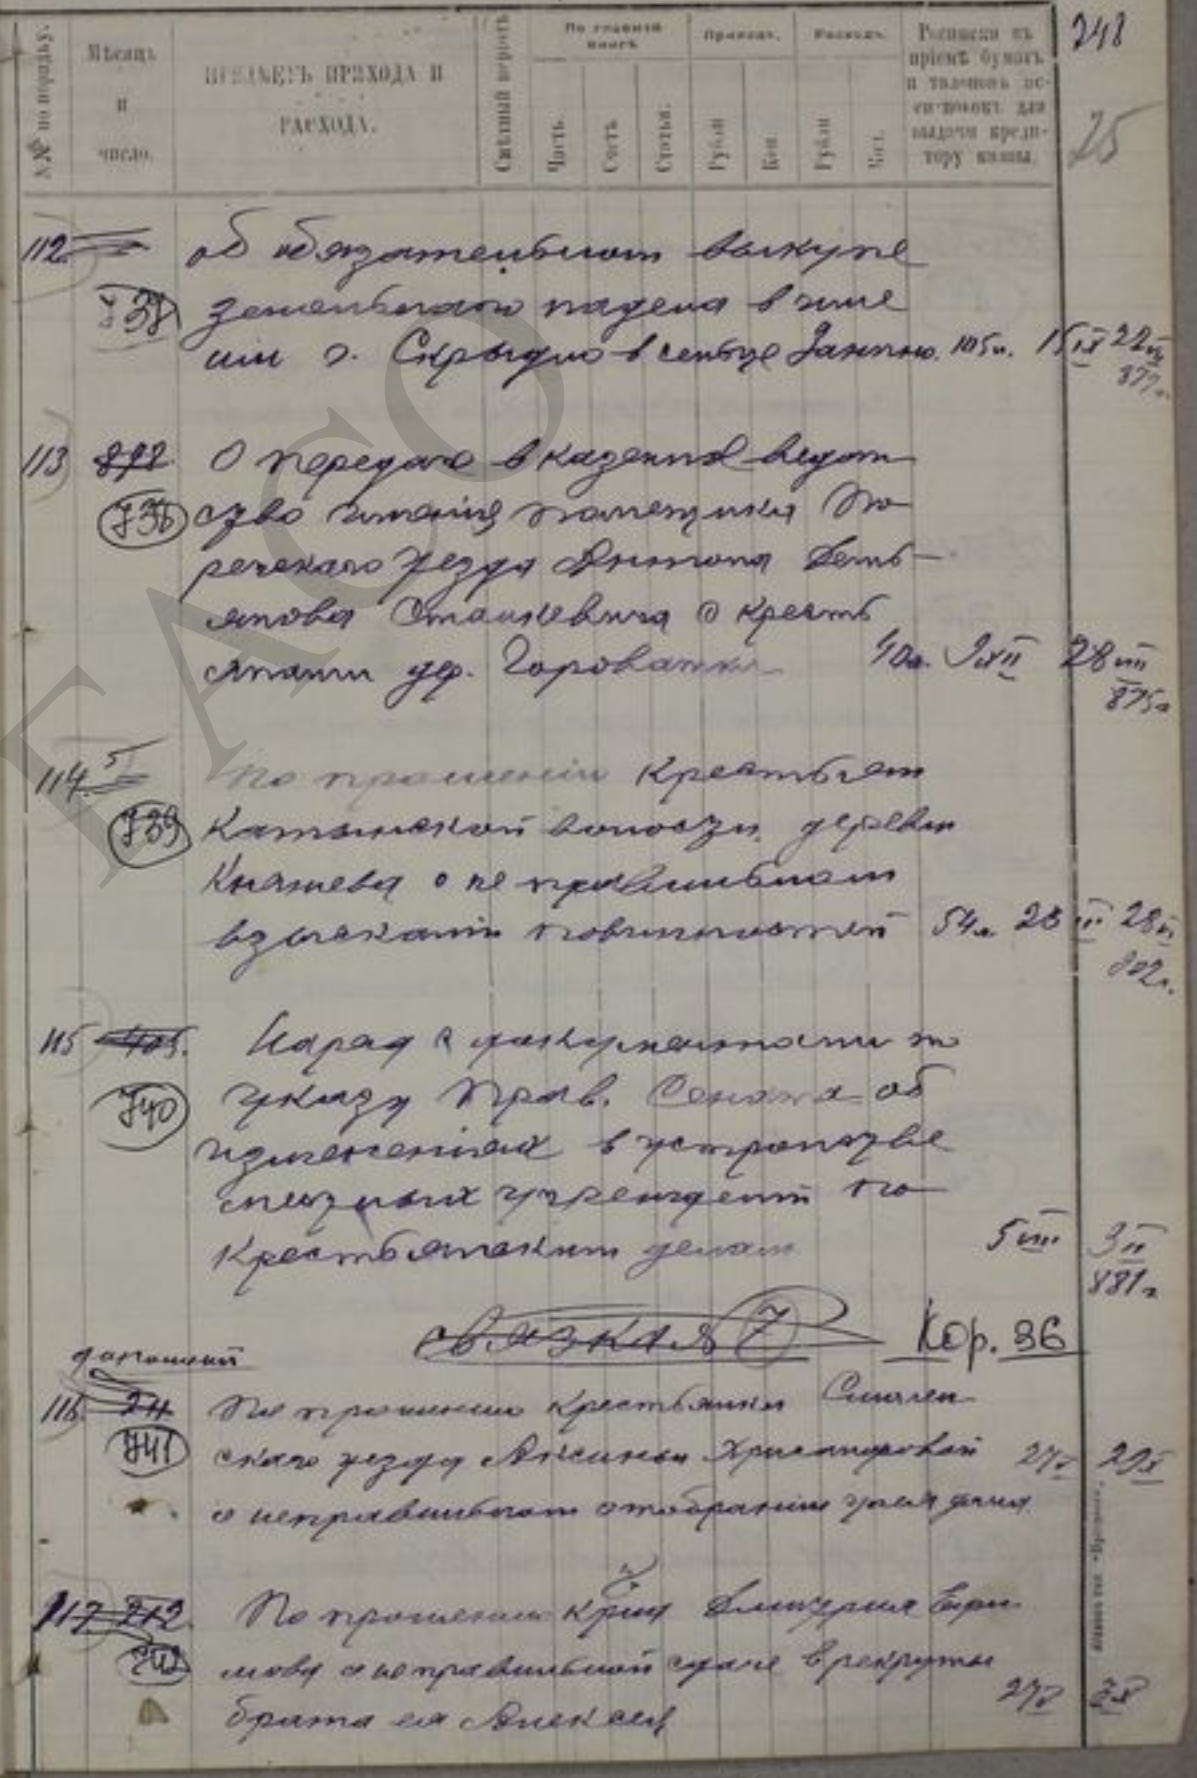 №№ по порядку.
Мѣсяцъ и число.
ПРЕДМЕТЪ ПРИХОДА И РАСХОДА.
Смѣтный періодъ
По главной книгѣ
Часть.
Статья.
Приходъ.
Рубли
Коп.
Расходъ.
Рубли
Коп.
Росписки въ пріемѣ бумагъ и талоновъ ассигновокъ для выдачи кредитору казны.
248
25
112.
об обязательном выкупе
738
земельного надела в име
нии г. Скрыдло в сельце 105л. 15 IX 22
877г.
113 878 О передаче в казенное ведом
736 ство имения помещика По
речского уезда Антона Демь
янова Станкевича с кресть
янами дер. Гороватки 40л. 9 XII 28 VIII
875г
114. По прошению крестьян
739 Катынской волости деревни
Княжева о не правильном
взыскании повинностей 54л. 28 III 28
802г.
115 405. Наряд с документами по
740 указу Прав. Сената об
изменениях в устройстве
местных учреждений по
крестьянским делам 5 VIII 3 II
881г
связка № 7 Кор. 36
116. 24 По прошению крестьянки Смолен
741 ского уезда Аксиньи Хрисанфовой 27 29 X
о неправильном отобрании у нея
117 212 По прошению Кр-на Дмитрия
742 мова о неправильной сдаче в рекруты
брата ея Алексея 27 7 X
ГАСО